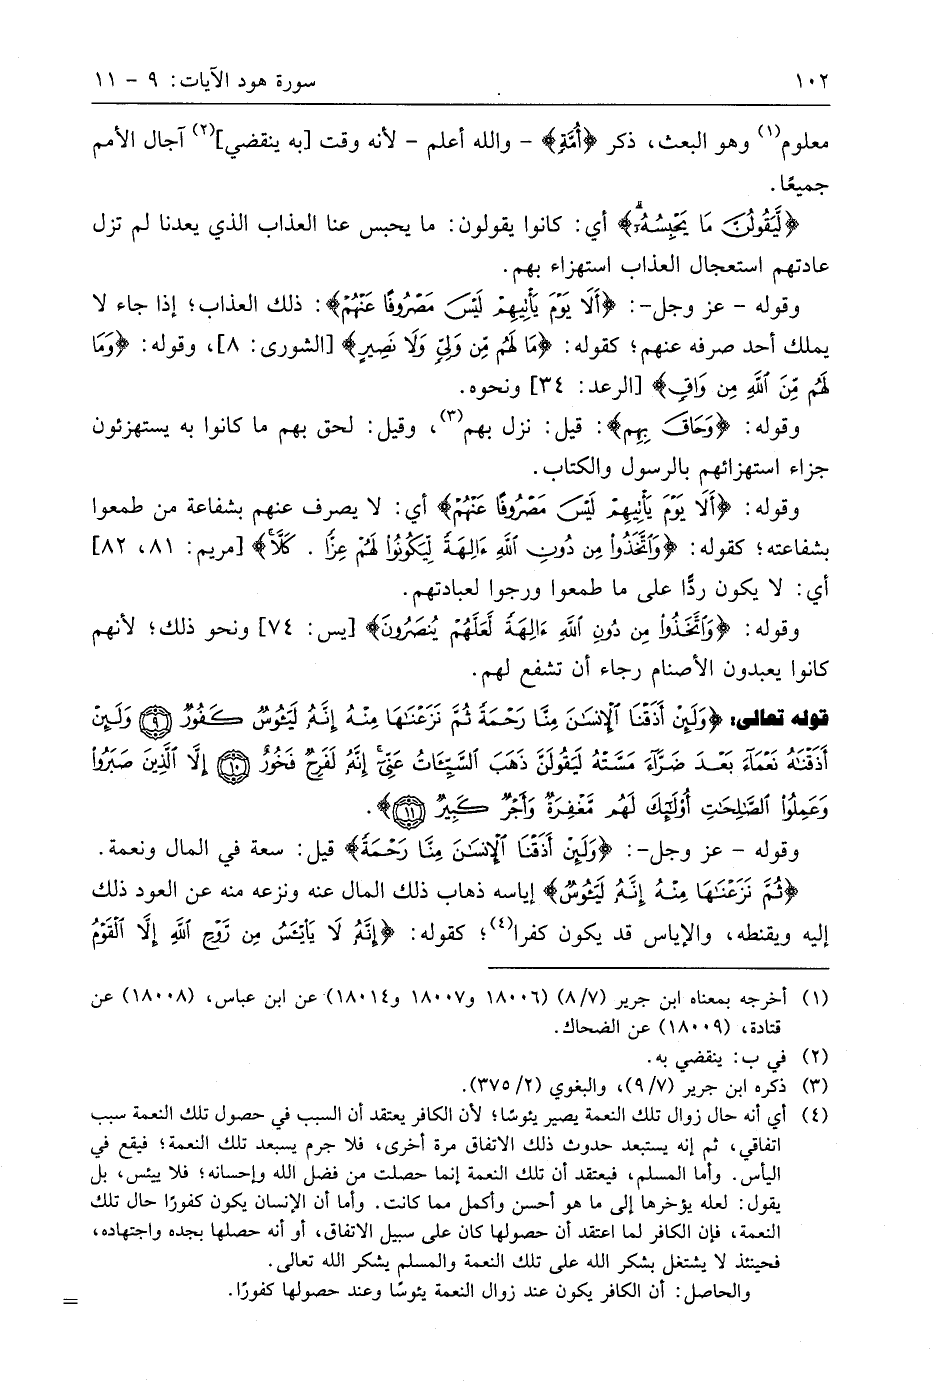 ١٠٢ سورة هود الآيات: ٩ – ١١
معلوم(١) وهو البعث، ذكر ﴿أُمَّةٍ﴾ – والله أعلم – لأنه وقت [به ينقضي](٢) آجال الأمم
جميعًا.
﴿لَّيَقُولُنَّ مَا يَحْبِسُهُۥٓ﴾ أي: كانوا يقولون: ما يحبس عنا العذاب الذي يعدنا لم تزل
عادتهم استعجال العذاب استهزاء بهم.
وقوله – عز وجل–: ﴿أَلَا يَوْمَ يَأْتِيهِمْ لَيْسَ مَصْرُوفًا عَنْهُمْ﴾: ذلك العذاب؛ إذا جاء لا
يملك أحد صرفه عنهم؛ كقوله: ﴿مَا لَهُم مِّن وَلِيٍّ وَلَا نَصِيرٍ﴾ [الشورى: ٨]، وقوله: ﴿وَمَا
لَهُم مِّنَ ٱللَّهِ مِن وَاقٍ﴾ [الرعد: ٣٤] ونحوه.
وقوله: ﴿وَحَاقَ بِهِم﴾: قيل: نزل بهم(٣)، وقيل: لحق بهم ما كانوا به يستهزئون
جزاء استهزائهم بالرسول والكتاب.
وقوله: ﴿أَلَا يَوْمَ يَأْتِيهِمْ لَيْسَ مَصْرُوفًا عَنْهُمْ﴾ أي: لا يصرف عنهم بشفاعة من طمعوا
بشفاعته؛ كقوله: ﴿وَٱتَّخَذُوا۟ مِن دُونِ ٱللَّهِ ءَالِهَةً لِّيَكُونُوا۟ لَهُمْ عِزًّا . كَلَّا﴾ [مريم: ٨١، ٨٢]
أي: لا يكون ردًّا على ما طمعوا ورجوا لعبادتهم.
وقوله: ﴿وَٱتَّخَذُوا۟ مِن دُونِ ٱللَّهِ ءَالِهَةً لَّعَلَّهُمْ يُنصَرُونَ﴾ [يس: ٧٤] ونحو ذلك؛ لأنهم
كانوا يعبدون الأصنام رجاء أن تشفع لهم.
قوله تعالى: ﴿وَلَئِنْ أَذَقْنَا ٱلْإِنسَـٰنَ مِنَّا رَحْمَةً ثُمَّ نَزَعْنَـٰهَا مِنْهُ إِنَّهُۥ لَيَـُٔوسٌ كَفُورٌ ٩ وَلَئِنْ
أَذَقْنَـٰهُ نَعْمَآءَ بَعْدَ ضَرَّآءَ مَسَّتْهُ لَيَقُولَنَّ ذَهَبَ ٱلسَّيِّـَٔاتُ عَنِّىٓ إِنَّهُۥ لَفَرِحٌ فَخُورٌ ١٠ إِلَّا ٱلَّذِينَ صَبَرُوا۟
وَعَمِلُوا۟ ٱلصَّـٰلِحَـٰتِ أُو۟لَـٰٓئِكَ لَهُم مَّغْفِرَةٌ وَأَجْرٌ كَبِيرٌ ١١﴾.
وقوله – عز وجل–: ﴿وَلَئِنْ أَذَقْنَا ٱلْإِنسَـٰنَ مِنَّا رَحْمَةً﴾ قيل: سعة في المال ونعمة.
﴿ثُمَّ نَزَعْنَـٰهَا مِنْهُ إِنَّهُۥ لَيَـُٔوسٌ﴾ إياسه ذهاب ذلك المال عنه ونزعه منه عن العود ذلك
إليه ويقنطه، والإياس قد يكون كفرا(٤)؛ كقوله: ﴿إِنَّهُۥ لَا يَا۟يْـَٔسُ مِن رَّوْحِ ٱللَّهِ إِلَّا ٱلْقَوْمُ
(١) أخرجه بمعناه ابن جرير (٨/٧) (١٨٠٠٦ و١٨٠٠٧ و١٨٠١٤) عن ابن عباس، (١٨٠٠٨) عن
قتادة، (١٨٠٠٩) عن الضحاك.
(٢) في ب: ينقضي به.
(٣) ذكره ابن جرير (٩/٧)، والبغوي (٣٧٥/٢).
(٤) أي أنه حال زوال تلك النعمة يصير يئوسًا؛ لأن الكافر يعتقد أن السبب في حصول تلك النعمة سبب
اتفاقي، ثم إنه يستبعد حدوث ذلك الاتفاق مرة أخرى، فلا جرم يسبعد تلك النعمة؛ فيقع في
اليأس. وأما المسلم، فيعتقد أن تلك النعمة إنما حصلت من فضل الله وإحسانه؛ فلا ييئس، بل
يقول: لعله يؤخرها إلى ما هو أحسن وأكمل مما كانت. وأما أن الإنسان يكون كفورًا حال تلك
النعمة، فإن الكافر لما اعتقد أن حصولها كان على سبيل الاتفاق، أو أنه حصلها بجده واجتهاده،
فحينئذ لا يشتغل بشكر الله على تلك النعمة والمسلم يشكر الله تعالى.
والحاصل: أن الكافر يكون عند زوال النعمة يئوسًا وعند حصولها كفورًا.
=